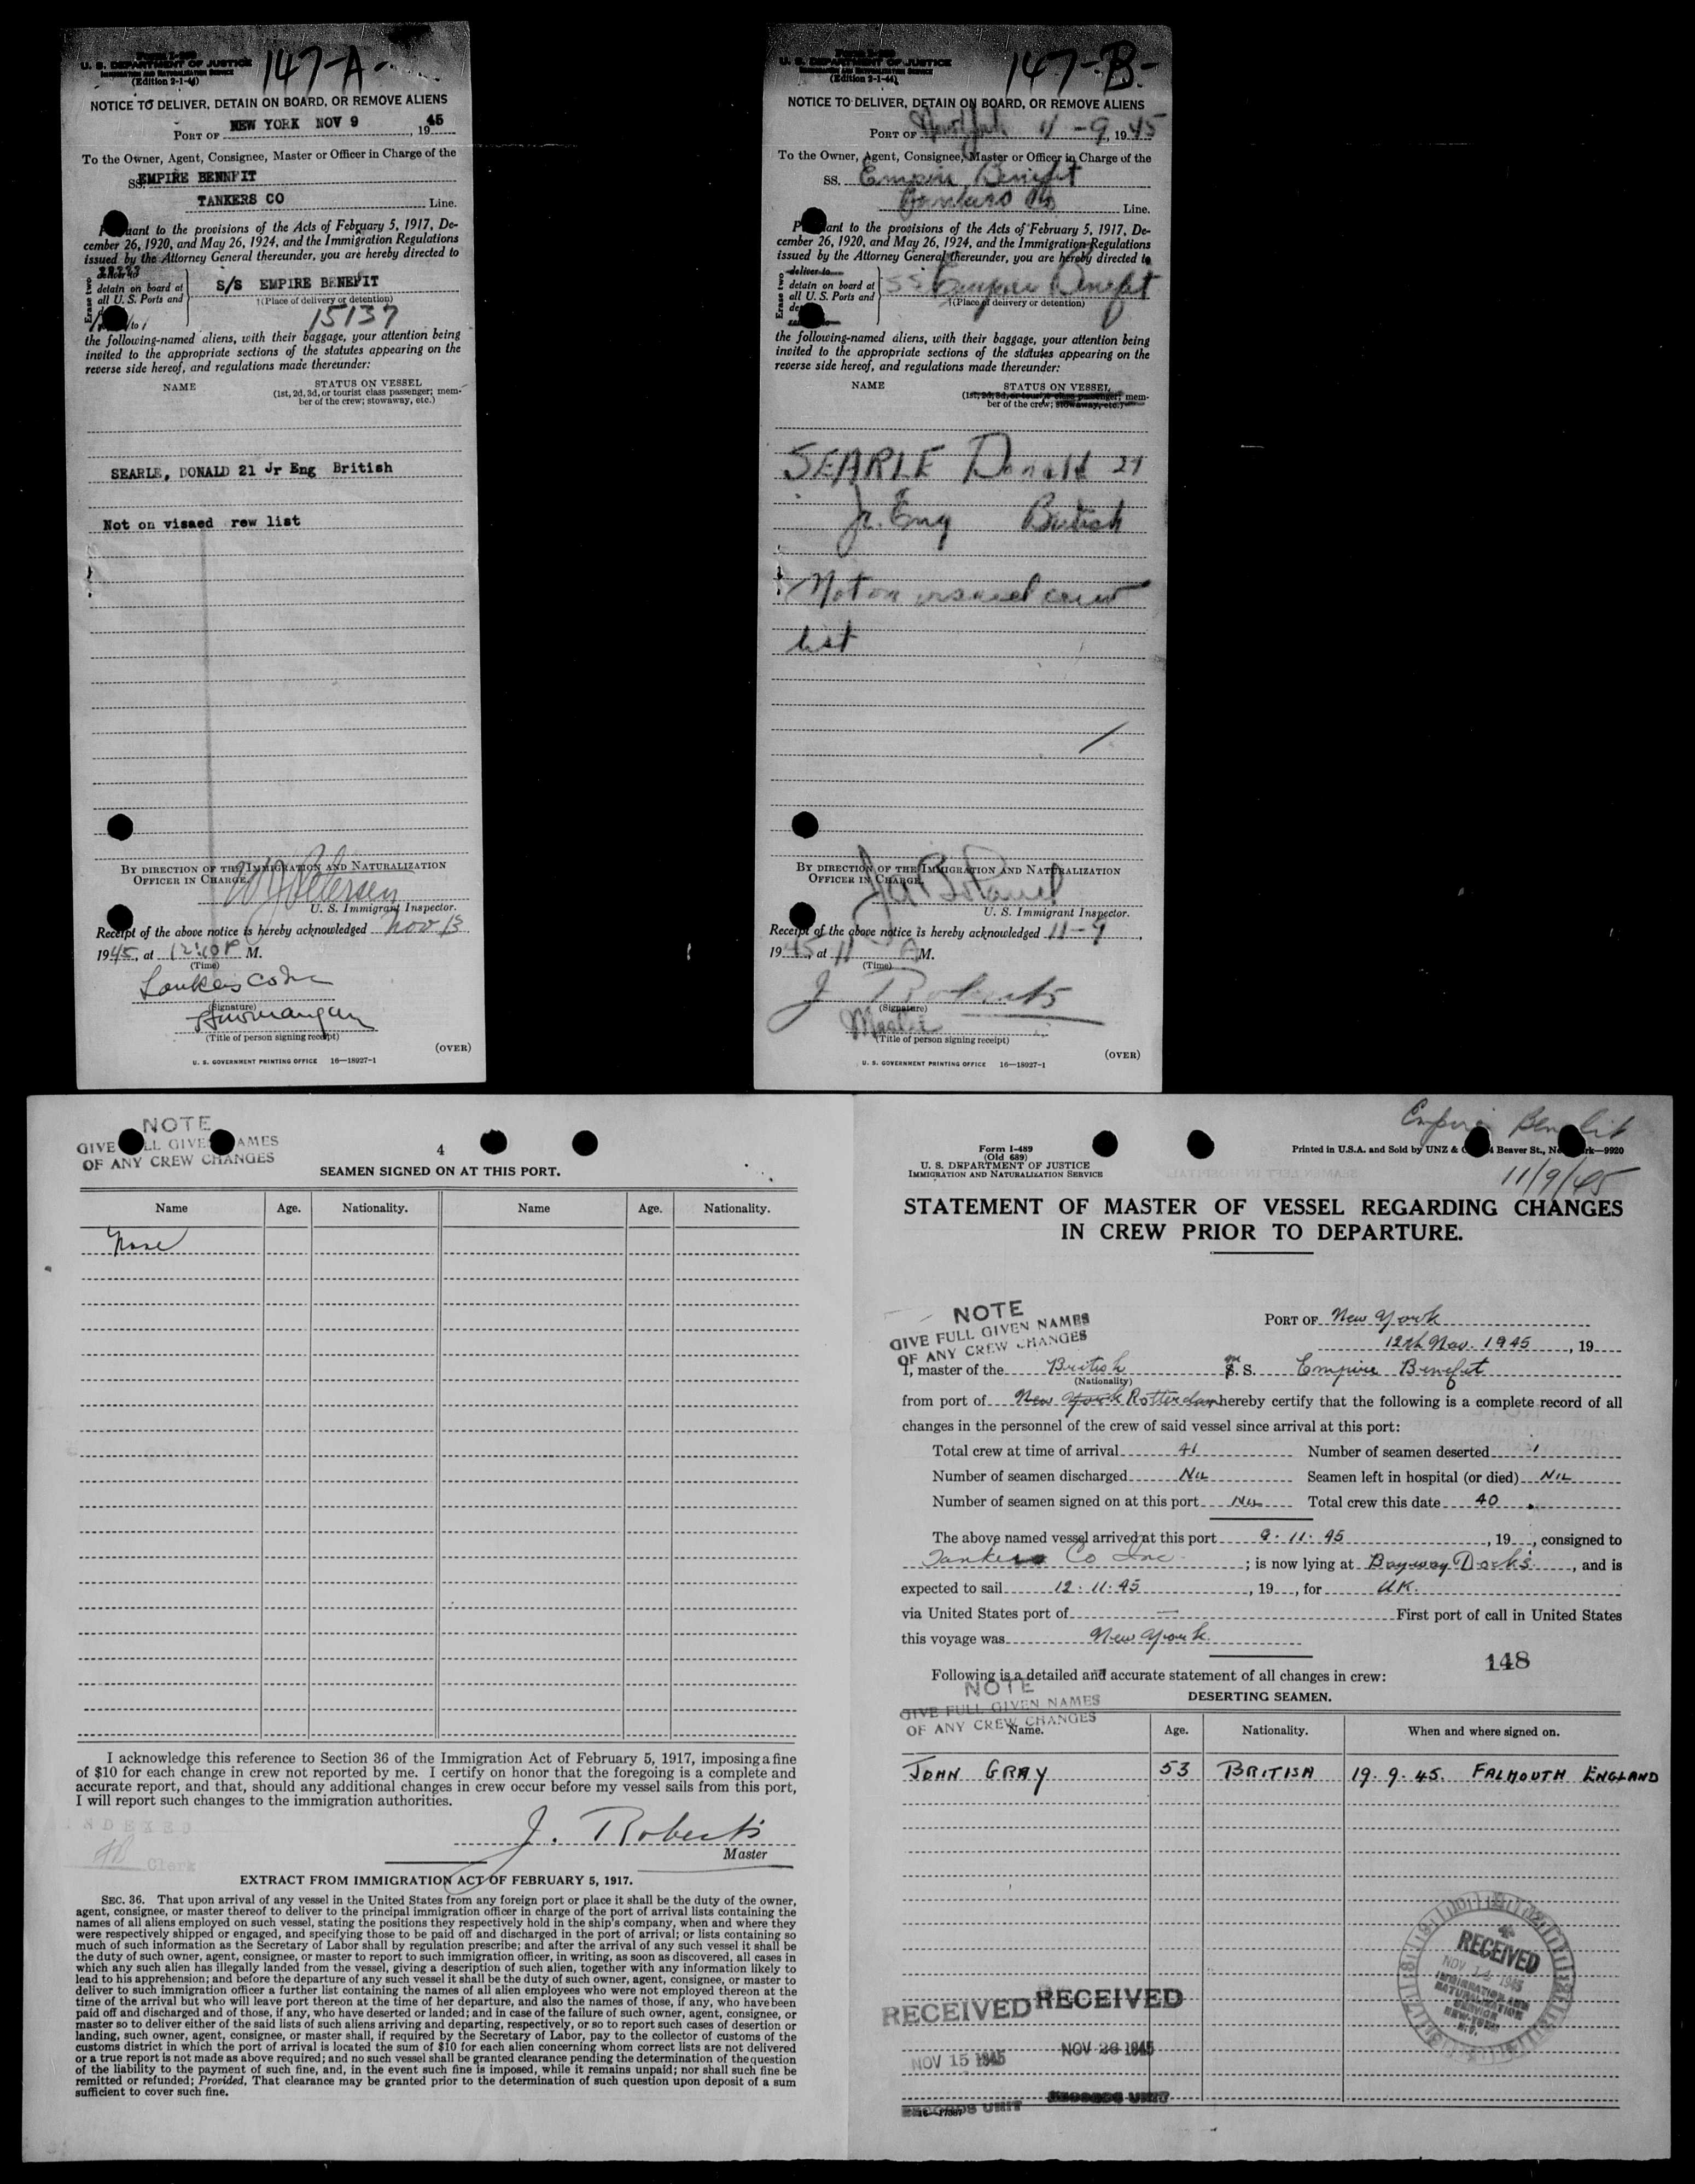 Form I-259
U. S. DEPARTMENT OF JUSTICE
IMMIGRATION AND NATURALIZATION SERVICE
(Edition 2-1-44)
147-A-
NOTICE TO DELIVER, DETAIN ON BOARD, OR REMOVE ALIENS
PORT OF NEW YORK NOV 9, 1945
To the Owner, Agent, Consignee, Master or Officer in Charge of the
SS. EMPIRE BENNFIT
TANKERS CO Line.
uant to the provisions of the Acts of February 5, 1917, De-
cember 26, 1920, and May 26, 1924, and the Immigration Regulations
issued by the Attorney General thereunder, you are hereby directed to
Erase two
detain on board at
all U. S. Ports and
S/S EMPIRE BENEFIT
†(Place of delivery or detention)
15137
the following-named aliens, with their baggage, your attention being
invited to the appropriate sections of the statutes appearing on the
reverse side hereof, and regulations made thereunder:
NAME
STATUS ON VESSEL
(1st, 2d, 3d, or tourist class passenger; mem-
ber of the crew; stowaway, etc.)
SEARLE, DONALD 21 Jr Eng British
Not on visaed rew list
BY DIRECTION OF THE IMMIGRATION AND NATURALIZATION
OFFICER IN CHARGE.
W J Petersen
U. S. Immigrant Inspector.
Receipt of the above notice is hereby acknowledged Nov 13
1945, at 12:10 P M.
(Time)
Tankers Co Inc
(Signature)
(Title of person signing receipt)
(OVER)
U. S. GOVERNMENT PRINTING OFFICE 16—18927-1
Form I-259
U. S. DEPARTMENT OF JUSTICE
IMMIGRATION AND NATURALIZATION SERVICE
(Edition 2-1-44)
147-B-
NOTICE TO DELIVER, DETAIN ON BOARD, OR REMOVE ALIENS
PORT OF New York 11-9, 1945
To the Owner, Agent, Consignee, Master or Officer in Charge of the
SS. Empire Benefit
Tankers Co Line.
P ant to the provisions of the Acts of February 5, 1917, De-
cember 26, 1920, and May 26, 1924, and the Immigration Regulations
issued by the Attorney General thereunder, you are hereby directed to
Erase two
deliver to
detain on board at
all U. S. Ports and
SS Empire Benefit
†(Place of delivery or detention)
the following-named aliens, with their baggage, your attention being
invited to the appropriate sections of the statutes appearing on the
reverse side hereof, and regulations made thereunder:
NAME
STATUS ON VESSEL
(1st, 2d, 3d, or tourist class passenger; mem-
ber of the crew; stowaway, etc.)
SEARLE Donald 21
Jr. Eng British
Not on visaed crew
list
BY DIRECTION OF THE IMMIGRATION AND NATURALIZATION
OFFICER IN CHARGE.
U. S. Immigrant Inspector.
Receipt of the above notice is hereby acknowledged 11-9,
1945, at 11 A M.
(Time)
J Roberts
(Signature)
Master
(Title of person signing receipt)
(OVER)
U. S. GOVERNMENT PRINTING OFFICE 16—18927-1
NOTE
GIVE LL GIVE AMES
OF ANY CREW CHANGES
4
SEAMEN SIGNED ON AT THIS PORT.
Name Age. Nationality. Name Age. Nationality.
None
I acknowledge this reference to Section 36 of the Immigration Act of February 5, 1917, imposing a fine
of $10 for each change in crew not reported by me. I certify on honor that the foregoing is a complete and
accurate report, and that, should any additional changes in crew occur before my vessel sails from this port,
I will report such changes to the immigration authorities.
INDEXED
Clerk
J. Roberts
Master
EXTRACT FROM IMMIGRATION ACT OF FEBRUARY 5, 1917.
SEC. 36. That upon arrival of any vessel in the United States from any foreign port or place it shall be the duty of the owner,
agent, consignee, or master thereof to deliver to the principal immigration officer in charge of the port of arrival lists containing the
names of all aliens employed on such vessel, stating the positions they respectively hold in the ship's company, when and where they
were respectively shipped or engaged, and specifying those to be paid off and discharged in the port of arrival; or lists containing so
much of such information as the Secretary of Labor shall by regulation prescribe; and after the arrival of any such vessel it shall be
the duty of such owner, agent, consignee, or master to report to such immigration officer, in writing, as soon as discovered, all cases in
which any such alien has illegally landed from the vessel, giving a description of such alien, together with any information likely to
lead to his apprehension; and before the departure of any such vessel it shall be the duty of such owner, agent, consignee, or master to
deliver to such immigration officer a further list containing the names of all alien employees who were not employed thereon at the
time of the arrival but who will leave port thereon at the time of her departure, and also the names of those, if any, who have been
paid off and discharged and of those, if any, who have deserted or landed; and in case of the failure of such owner, agent, consignee, or
master so to deliver either of the said lists of such aliens arriving and departing, respectively, or so to report such cases of desertion or
landing, such owner, agent, consignee, or master shall, if required by the Secretary of Labor, pay to the collector of customs of the
customs district in which the port of arrival is located the sum of $10 for each alien concerning whom correct lists are not delivered
or a true report is not made as above required; and no such vessel shall be granted clearance pending the determination of the question
of the liability to the payment of such fine, and, in the event such fine is imposed, while it remains unpaid; nor shall such fine be
remitted or refunded; Provided, That clearance may be granted prior to the determination of such question upon deposit of a sum
sufficient to cover such fine.
Empire Benefit
11/9/45
Form I-489
(Old 689)
U. S. DEPARTMENT OF JUSTICE
IMMIGRATION AND NATURALIZATION SERVICE
Printed in U.S.A. and Sold by UNZ & C 4 Beaver St., Ne rk—9920
STATEMENT OF MASTER OF VESSEL REGARDING CHANGES
IN CREW PRIOR TO DEPARTURE.
NOTE
GIVE FULL GIVEN NAMES
OF ANY CREW CHANGES
PORT OF New York
12th Nov. 1945, 19
I, master of the British S. S. Empire Benefit
(Nationality)
from port of New York Rotterdam hereby certify that the following is a complete record of all
changes in the personnel of the crew of said vessel since arrival at this port:
Total crew at time of arrival 41 Number of seamen deserted 1
Number of seamen discharged NIL Seamen left in hospital (or died) NIL
Number of seamen signed on at this port NIL Total crew this date 40
The above named vessel arrived at this port 9.11.45, 19, consigned to
Tankers Co Inc; is now lying at Bayway Docks, and is
expected to sail 12.11.45, 19, for UK.
via United States port of — First port of call in United States
this voyage was New York.
148
Following is a detailed and accurate statement of all changes in crew:
NOTE
GIVE FULL GIVEN NAMES
OF ANY CREW CHANGES
DESERTING SEAMEN.
Name. Age. Nationality. When and where signed on.
JOHN GRAY 53 BRITISH 19.9.45. FALMOUTH ENGLAND
RECEIVED
NOV 1 1945
IMMIGRATION AND
NATURALIZATION
SERVICE
NEW YORK
N.Y.
RECEIVED RECEIVED
NOV 15 1945 NOV 26 1945
RECORDS UNIT RECORDS UNIT
16—17387